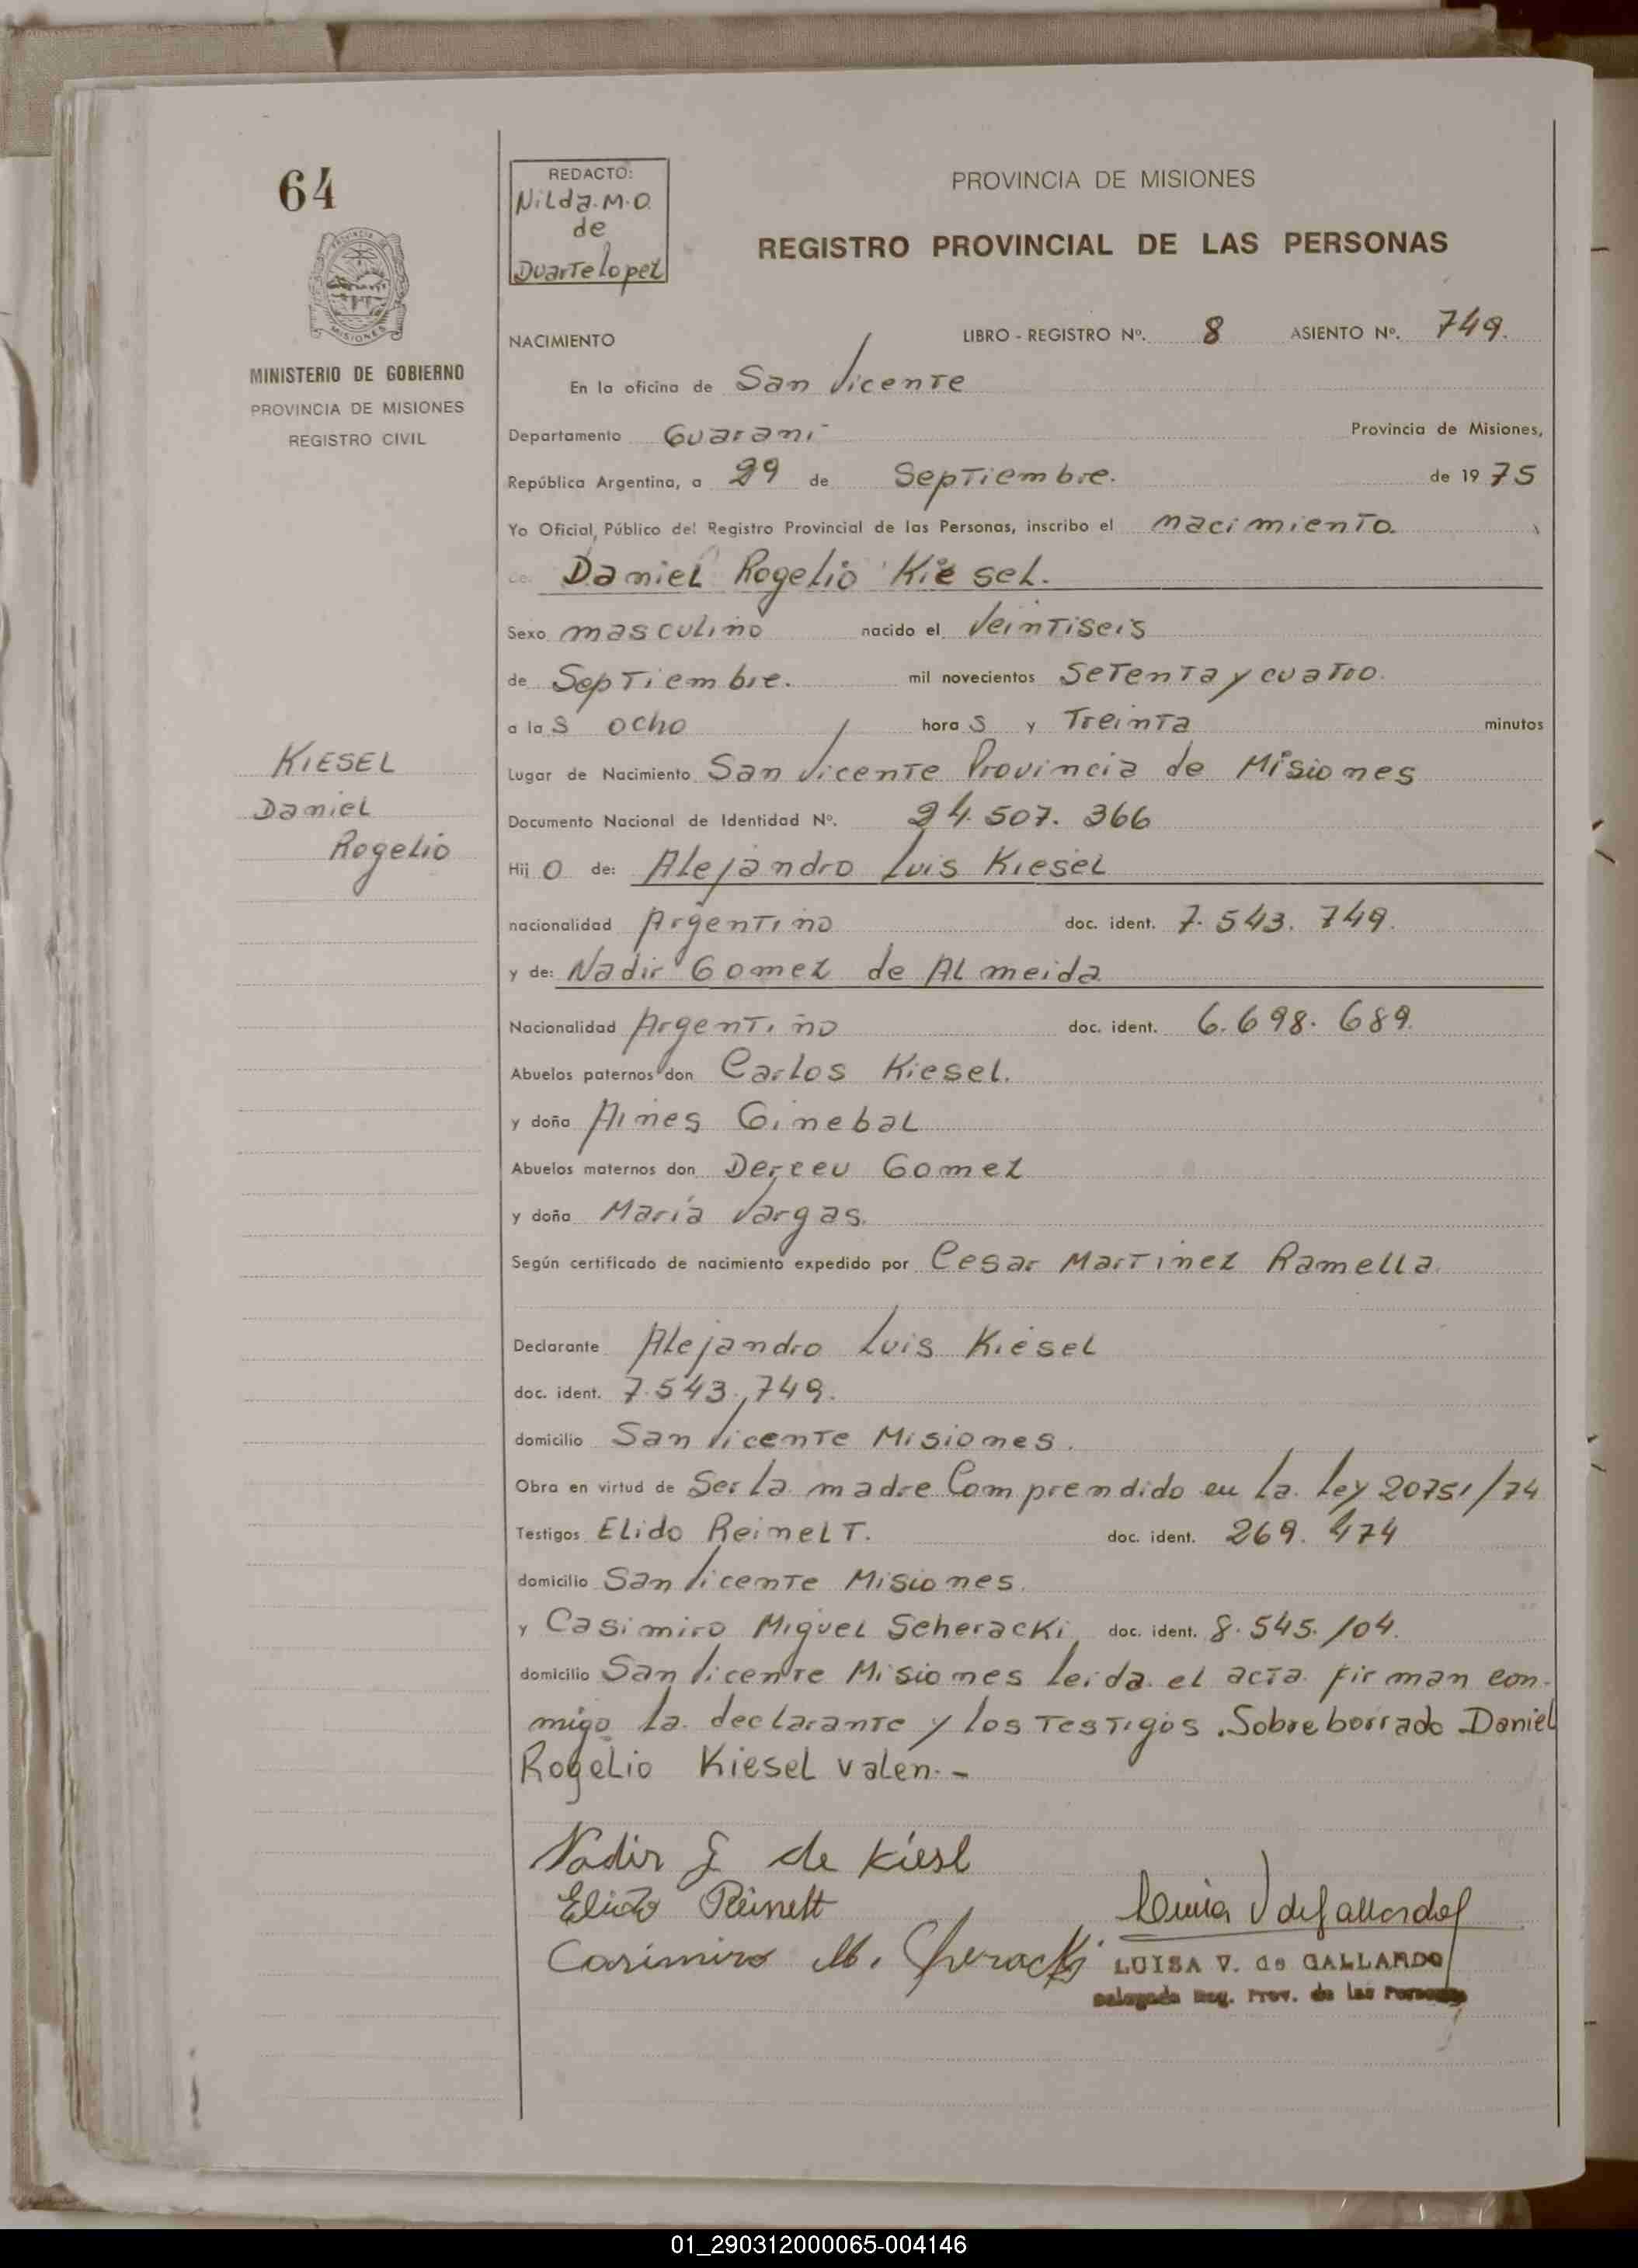 64
PROVINCIA DE
MISIONES
MINISTERIO DE GOBIERNO
PROVINCIA DE MISIONES
REGISTRO CIVIL
KIESEL
Daniel
Rogelio
REDACTO:
Nilda.M.O.
de
Duartelopez
PROVINCIA DE MISIONES
REGISTRO PROVINCIAL DE LAS PERSONAS
NACIMIENTO LIBRO - REGISTRO Nº. 8 ASIENTO Nº. 749.
En la oficina de San Vicente
Departamento Guaraní Provincia de Misiones,
República Argentina, a 29 de Septiembre. de 1975
Yo Oficial Público del Registro Provincial de las Personas, inscribo el nacimiento.
de: Daniel Rogelio Kiesel.
Sexo masculino nacido el Veintiseis
de Septiembre. mil novecientos Setenta y cuatro.
a las ocho horas y Treinta minutos
Lugar de Nacimiento San Vicente Provincia de Misiones
Documento Nacional de Identidad Nº. 24.507.366
Hijo de: Alejandro Luis Kiesel
nacionalidad Argentino doc. ident. 7.543.749.
y de: Nadir Gomez de Almeida
Nacionalidad Argentino doc. ident. 6.698.689.
Abuelos paternos don Carlos Kiesel.
y doña Aines Ginebal
Abuelos maternos don Derceu Gomez
y doña María Vargas.
Según certificado de nacimiento expedido por Cesar Martinez Ramella.
Declarante Alejandro Luis Kiesel
doc. ident. 7.543.749.
domicilio San Vicente Misiones.
Obra en virtud de Ser la madre Comprendido en la ley 20751/74
Testigos Elido Reinelt. doc. ident. 269.474
domicilio San Vicente Misiones.
y Casimiro Miguel Scheracki doc. ident. 8.545.104.
domicilio San Vicente Misiones leida el acta firman con-
migo la declarante y los Testigos. Sobreborrado Daniel
Rogelio Kiesel valen.-
Nadir G de Kiesl
Elido Reinelt
Casimiro M. Sheracki
Luisa V de Gallardo
LUISA V. de GALLARDO
Delegada Reg. Prov. de las Personas
01_290312000065-004146